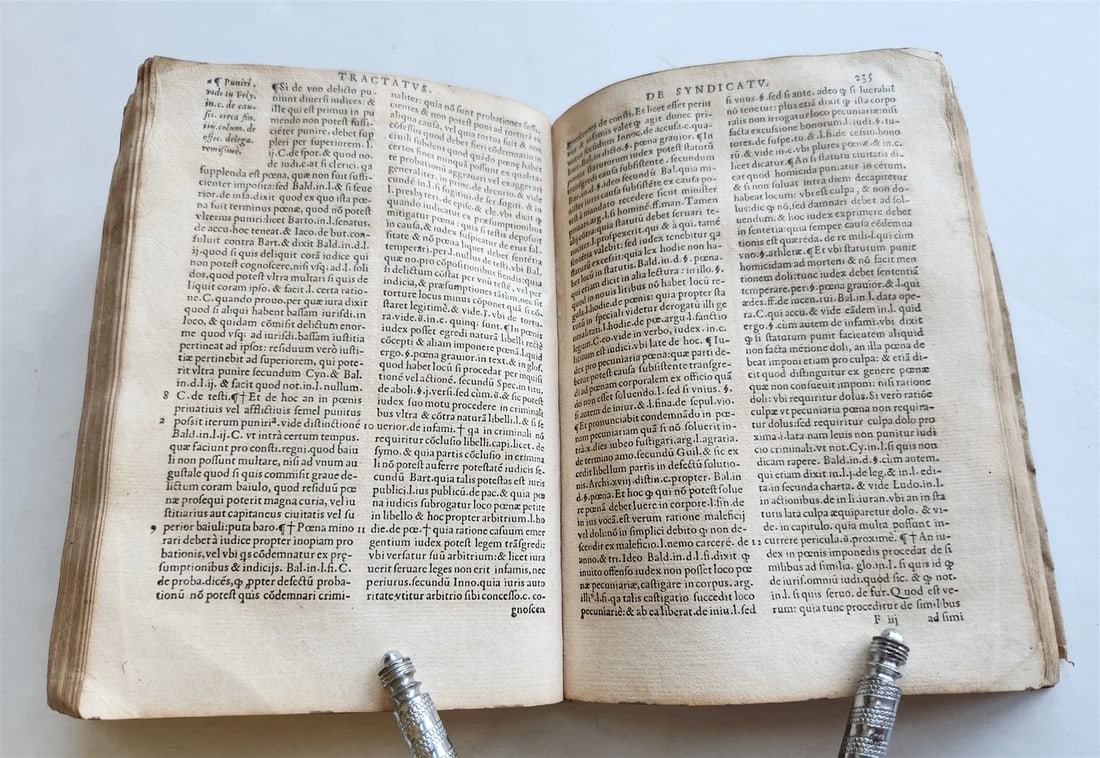 TRACTATVS.
a ¶ Puniri,
vide in Fely.
in.c. de cau-
sis. circa fin.
iiii.colum.de
offic. delega.
remissiue.
¶Si de vno delicto pu-
niunt diuersi iudices: &
ille qui est primus in pu
niendo non potest suffi-
ciēter punire, debet sup
pleri per superiorem. l.
ij.C.de spor. & quod no.
de iudi.c.at si clerici. ga
supplenda est pœna, quæ non fuit suffi-
cienter imposita: sed Bald.in.l. & si seue
rior.de infa.dixit quod ex quo ista pœ-
na fuit terminus pœnæ, quod nō potest
vlterius puniri: licet Barto.in.l.senatus.
de accu.hoc teneat. & Iaco.de but.con-
suluit contra Bart. & dixit Bald.in.d.l.
ij.quod si quis deliquit corā iudice qui
non potest cognoscere, nisi vsq; ad.l. soli
dos, quod potest vltra multari si quis de
liquit coram ipso. & facit.l. certa ratio-
ne.C. quando prouo.per quæ iura dixit
quod si aliqui habent bassam iurisdi.in
loco, & quidam cōmisit delictum enor-
me quod vsq; ad iurisdi.bassam iustitia
pertineat ad ipsos: residuum verò iusti-
tiæ pertinebit ad superiorem, qui pote-
rit vltra punire secundum Cyn.& Bal.
in.d.l.ij. & facit quod not.in.l. nullum.
8 C. de testi.¶†Et de hoc an in pœnis
priuatiuis vel afflictiuis semel punitus
2 possit iterum puniriª. vide distinctionē
Bald.in.l.ij.C. vt intrà certum tempus.
quæ faciunt pro consti.regni.quod baiu
li non possunt multare, nisi ad vnum au
gustale quod si quis commisit graue de-
lictum coram baiulo, quod residuū pœ
næ prosequi poterit magna curia, vel iu
stitiarius aut capitaneus ciuitatis vel su
9 perior baiuli: puta baro.¶†Pœna mino
rari debet à iudice propter inopiam pro
bationis, vel vbi qs cōdemnatur ex prę-
sumptionibus & indicijs. Bal.in.l.fi. C.
de proba.dicēs, ꝙ ꝓpter defectū proba-
tionū nō potest quis cōdemnari crimi-
naliter: quia nō sunt probationes suffi-
cientes & non potest poni ad torturā ex
aliqua causa, vel quia tortus fuit & nō
cōfessus quod debet fieri cōdemnatio in
ciuili subdens quod quādo pœnæ habēt
certos fines nunquam possunt ex qualita
te probationū aggrauari vel exaggerari
generaliter. in princ. de decurio. & vide
cundē in.l.si fugitiui. de ser.fugiti. & in
l. presbyteri. de epis. & cle. vbi dicit ꝙ
quando iudicatur ex præsumptionibus
mitigatur pœna. vt quia si testis deposuit
in causa, & iudex suspicatur de eius fal-
sitate & nō pœna liquet debet sententia
temperari.per.l.nullus de testi.vbi Bal.
quæ no.pro cōpositionibus fiendis: quia
si delictum cōstat per vnū testē, vel per
indicia, & præsumptiones tātùm, nec sit
torture locus minus cōponet quā si cō-
staret legitimè. & vide.ff. vbi de tortu-
ra.vide.ā.in.c. quinq; sunt. ¶In pœnis
iudex posset egredi naturā libelli rectè
cōcepti & aliam imponere pœnā.l.quid
ergo.§.pœna grauior.in text.& in glos.
quod habet locū si procedat per inquisi
tionē vel actionē. secundū Spec.in titu.
de aboli.§.j.versi.sed cùm.ā.& sic potest
iudex suo motu procedere in criminali
bus vltra & cōtra naturā libelli.l.& si se
10 uerior.de infami.† ga in criminali nō
requiritur cōclusio libelli.capi.licet. de
symo. & quia partis cōclusio in crimina
li nō potest auferre potestatē iudicis se-
cundū Bart.quia talis potestas est iuris
publici.l.ius publicū.de pac. & quia pœ
na iudicis subrogatur loco pœnæ petitæ
in libello & hoc propter arbitrium.l.ho
11 die.de pœ.† quia ratione casuum emer
gentium iudex potest legem trāsgredi:
vbi versatur suū arbitrium: & licet iura
uerit seruare leges non erit infamis, nec
periurus.secundū Inno.quia iuris auto
ritate vtitur arbitrio sibi concesso. c. co-
gnoscen
DE SYNDICATV. 235
gnoscentes de consti. Et licet esset periu
rus & infamis valet ꝙ agit donec pri-
uetur secundum Innoc.de accusa.c.qua-
liter. Bal.in.dicto.§. pœna grauior. ¶In
pœnis statutorum iudex potest statuta
transgredi causa subsistente. secundum
Bar.in.d.§.ideo secundū Bal.quia mi-
nister iuris causa subsistēte ex causa po-
test à mandato recedere sicut minister
priuati: arg.l.si hominē.ff.man. Tamen
alij cōtra: quia statutū debet seruari te-
naciter.l.prospexerit. qui & à qui. tamē
sententia valebit: sed iudex tenebitur ga
statutū excessit: quia lex hodie non ha-
bet locū in statutis. Bald.in.d.§. pœna.
qui etiam dicit in alia lectura: in illo.§.
quod in nouis litibus nō habet locū re-
gula.l.hodie.de pœnis: quia propter sta
tutū in speciali videtur derogatū illi ge
neralitati.l.hodie.de pœ.arg.u.l.sanctio
legum.C.eo.vide in verbo, iudex. in.c.
licitum est iudici.vbi late de hoc. ¶Iu-
dex pro pecuniaria pœna: quæ parti de-
betur potest causa subsistente transgre-
di ad pœnam corporalem ex officio quā
do non esset soluendo.l. sed si vnius.§.
si autem de iniur.& l.fina.de sepul.vio.
¶Et pronunciabit condemnādo in pœ-
nam pecuniariam quā si nō soluerit in-
trà.x.dies iubeo fustigari.arg.l.agraria.
de termino amo.secundū Guil.& sic ex
cedit libellum partis in defectū solutio-
nis. Archi.xviij.distin.c.propter. Bal.in
d.§.pœna. Et hoc ꝙ qui nō potest solue
re pœnā debet luere in corpore.l.fin.de
in ius voca.est verum ratione maleficij
vel doli: nō in simplici debito ꝙ non de-
scendit ex maleficio.l.nemo carcerē. de 12
anno.& tri. Ideo Bald.in.d.l.fi.dixit ꝙ
inuito offenso iudex non posset loco pœ
næ pecuniariæ, castigare in corpus. arg.
illiꝰ.l.fi.qa talis castigatio succedit loco
pecuniariè: & ab ea liberat.de iniu.l.sed
si vnus.§.sed si ante. adeo ꝙ si lucrabit
nō tenetur: plus etiā dixit ꝙ ista corpo
ralis non irrogatur loco pecuniariæ: nisi
facta excusione bonorum.l. iudi.§. tu-
facere pe. tute. & .l.fi.de cessio.bono
rū.& vide in.c.vbi plures pœnæ. & in.c.
licet dicatur. ¶An si statutū ciuitatis di-
cat quod homicida puniatur in cētum,
& si non soluat intra diem decapitetur
habeat locum: vbi est culpa, & non do-
lus: dic ꝙ nō, sed damnari debet ad sol-
uendum. & hoc iudex exprimere debet
in sentētia: quia semper causa cōdemna
tionis est quæreda. de re mili.l. qui cùm
vno.§.athletæ. ¶Et vbi statutum punit
homicidam ad mortem & nō facit men
tionem doli: tunc iudex debet sententiā
temperare.per.§.pœna grauior.& l.qui
ædes.ff.de incen.rui. Bal.in.l. data ope-
ra.C.qui accu.& vide eādem in.l. quid
ergo.§.cùm autem de infami.vbi dixit
ꝙ si statutum punit facientem aliquid
non facta mētione doli, an illa pœna de
beat imponi etiam pro culpa: & etiā di-
cit quod distinguitur ex genere pœnæ
quæ non consueuit imponi: nisi ratione
doli: vbi requiritur dolus. Si verò ratiōe
culpæ vt pecuniaria pœna non requira-
tur dolus: sed requiritur culpa dolo pro
xima: i.lata nam leuis non punitur iudi
cio criminali.vt not.Cy.in.l.si quis non
dicam rapere. Bald.in.d.§.cùm autem.
qui etiam dixit in.l.j.de leg.& in.l. edi-
ta in secunda charta. & vide Ludo.in.l.
in actionibus.de in li.iuran.vbi an in sta
turis lata culpa æquiparetur dolo. & vi-
de. in capitulo. quia multa possunt in-
currere pericula.ā.proximè. ¶†An iu-
dex in pœnis imponedis procedat de si
milibus ad similia. glo.in.l. si quis id ꝙ
de iuris.omniū iudi.quòd sic. & ꝙ not.
in.l. si quis seruo. de fur. Quod est ve-
rum: quia tunc proceditur de similibus
F iij ad simi